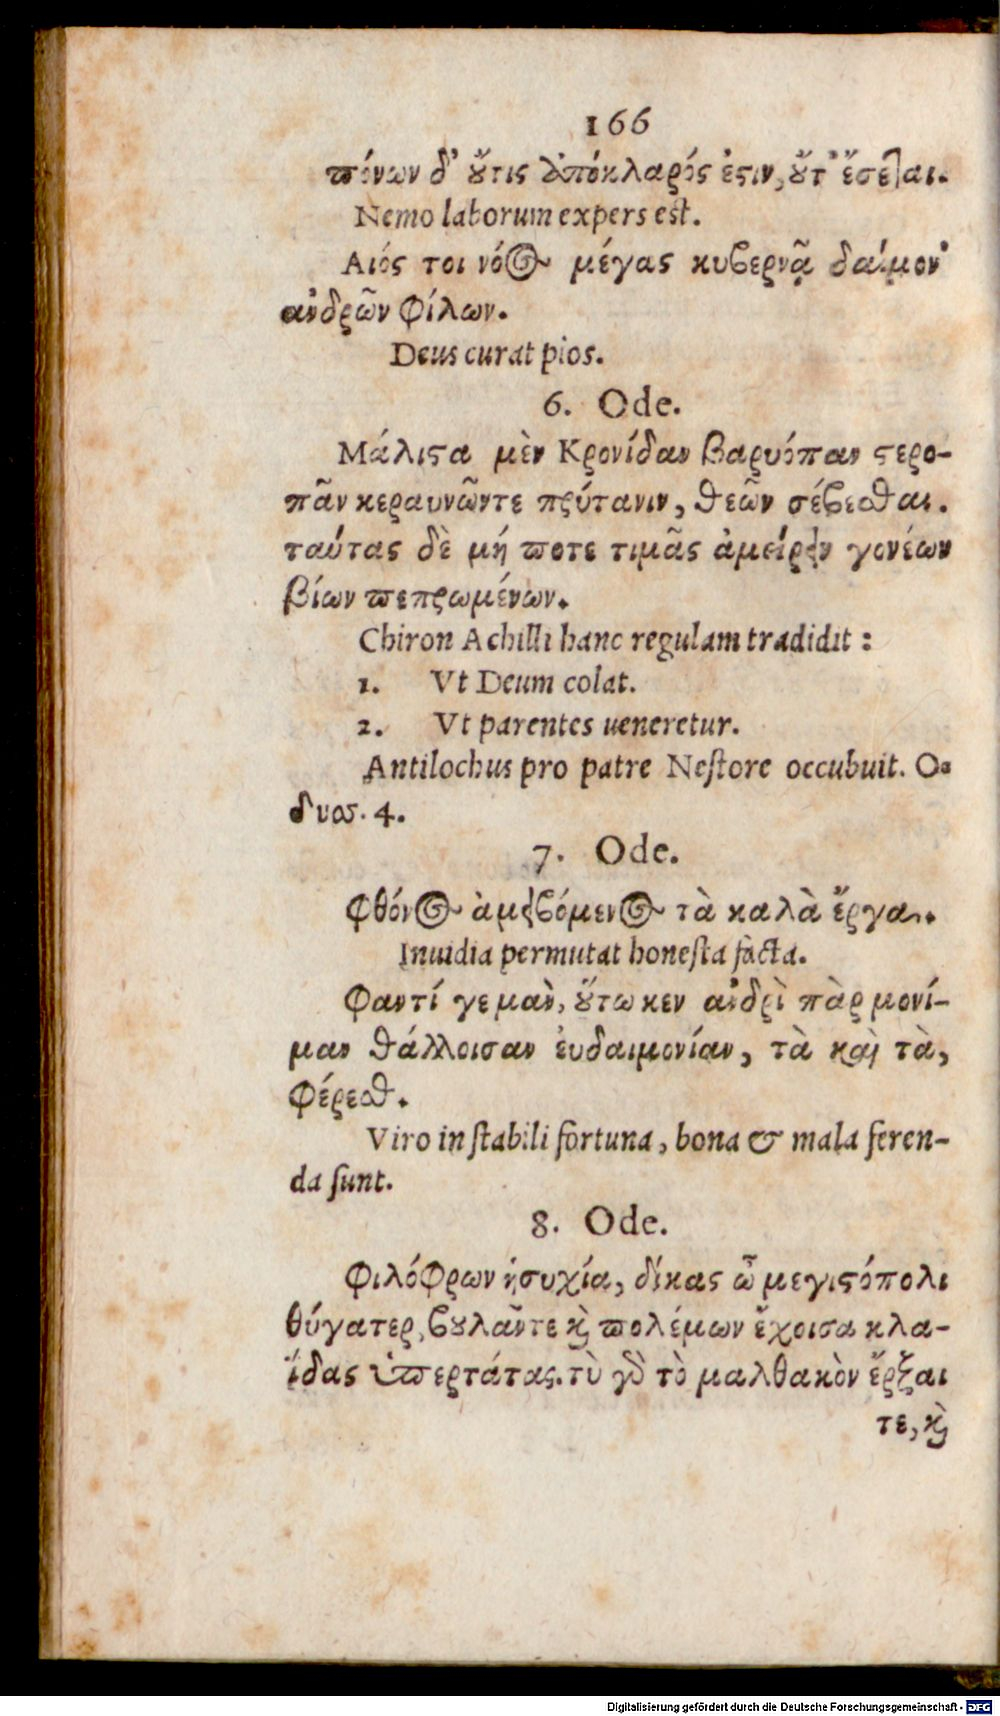 166
πόνων δ' ȣ̓́τις ἀπόκλαρός ἐϛιν, ȣ̓́τ' ἔσεται.
Nemo laborum expers est.
Διός τοι νόος μέγας κυβερνᾷ δαίμον'
ἀνδρῶν φίλων.
Deus curat pios.
6. Ode.
Μάλιϛα μὲν Κρονίδαν βαρυόπαν ϛερο-
πᾶν κεραυνῶντε πρύτανιν, θεῶν σέβεσθαι.
ταύτας δὲ μή ποτε τιμᾶς ἀμείρειν γονέων
βίων πεπρωμένων.
Chiron Achilli hanc regulam tradidit:
1. Vt Deum colat.
2. Vt parentes ueneretur.
Antilochus pro patre Neſtore occubuit. Ο-
δυσσ. 4.
7. Ode.
Φθόνος ἀμειβόμενος τὰ καλὰ ἔργα.
Inuidia permutat honeſta facta.
Φαντί γε μὰν, ȣ̓́τω κεν ἀνδρὶ πὰρ μονί-
μαν θάλλοισαν ἐυδαιμονίαν, τὰ καὶ τὰ,
φέρεσθ.
Viro in ſtabili fortuna, bona & mala feren-
da ſunt.
8. Ode.
Φιλόφρων ἡσυχία, δίκας ὦ μεγιϛόπολι
θύγατερ, βȣλᾶντε κὶ πολέμων ἔχοισα κλα-
ΐδας ὑπερτάτας. τὺ γὸ τὸ μαλθακὸν ἔρξαι
τε, κὶ
Digitalisierung gefördert durch die Deutsche Forschungsgemeinschaft - DFG